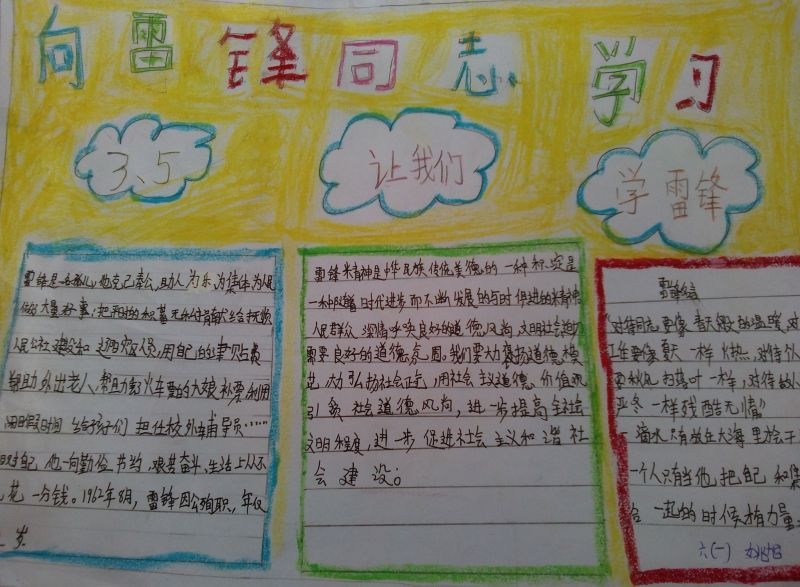 向雷锋同志学习
3、5
让我们
学雷锋
雷锋是孤儿,他克己奉公,助人为乐,为集体为人民
做大量好事:把所有的积蓄无私捐献给抚顺
人民公社建设和辽阳灾区人民,用自己的津贴费
帮助外出老人、帮助火车的大娘补票,利用
闲日假时间给孩子们担任校外辅导员……
对自己他一向勤俭节约,艰苦奋斗、生活上从不
花一分钱。1962年8月,雷锋因公殉职,年仅
岁.
雷锋精神是中华民族传统美德的一种积淀是
一种随着时代进步而不断发展的与时俱进的精神
人民群众深情呼唤良好的道德风尚,文明社会迫切
需要良好的道德氛围。我们要大力褒扬道德模
范,大力弘扬社会正气,用社会主义道德价值观
引领社会道德风尚,进一步提高全社会
文明程度,进一步促进社会主义和谐社
会建设。
雷锋名言
“对待同志要像春天般的温暖,对
工作要像夏天一样火热,对待个
要像秋风扫落叶一样,对待敌人
严冬一样残酷无情”
一滴水只有放在大海里
一个人只有当他把自己和集
合一起的时候才有力量
六(一)